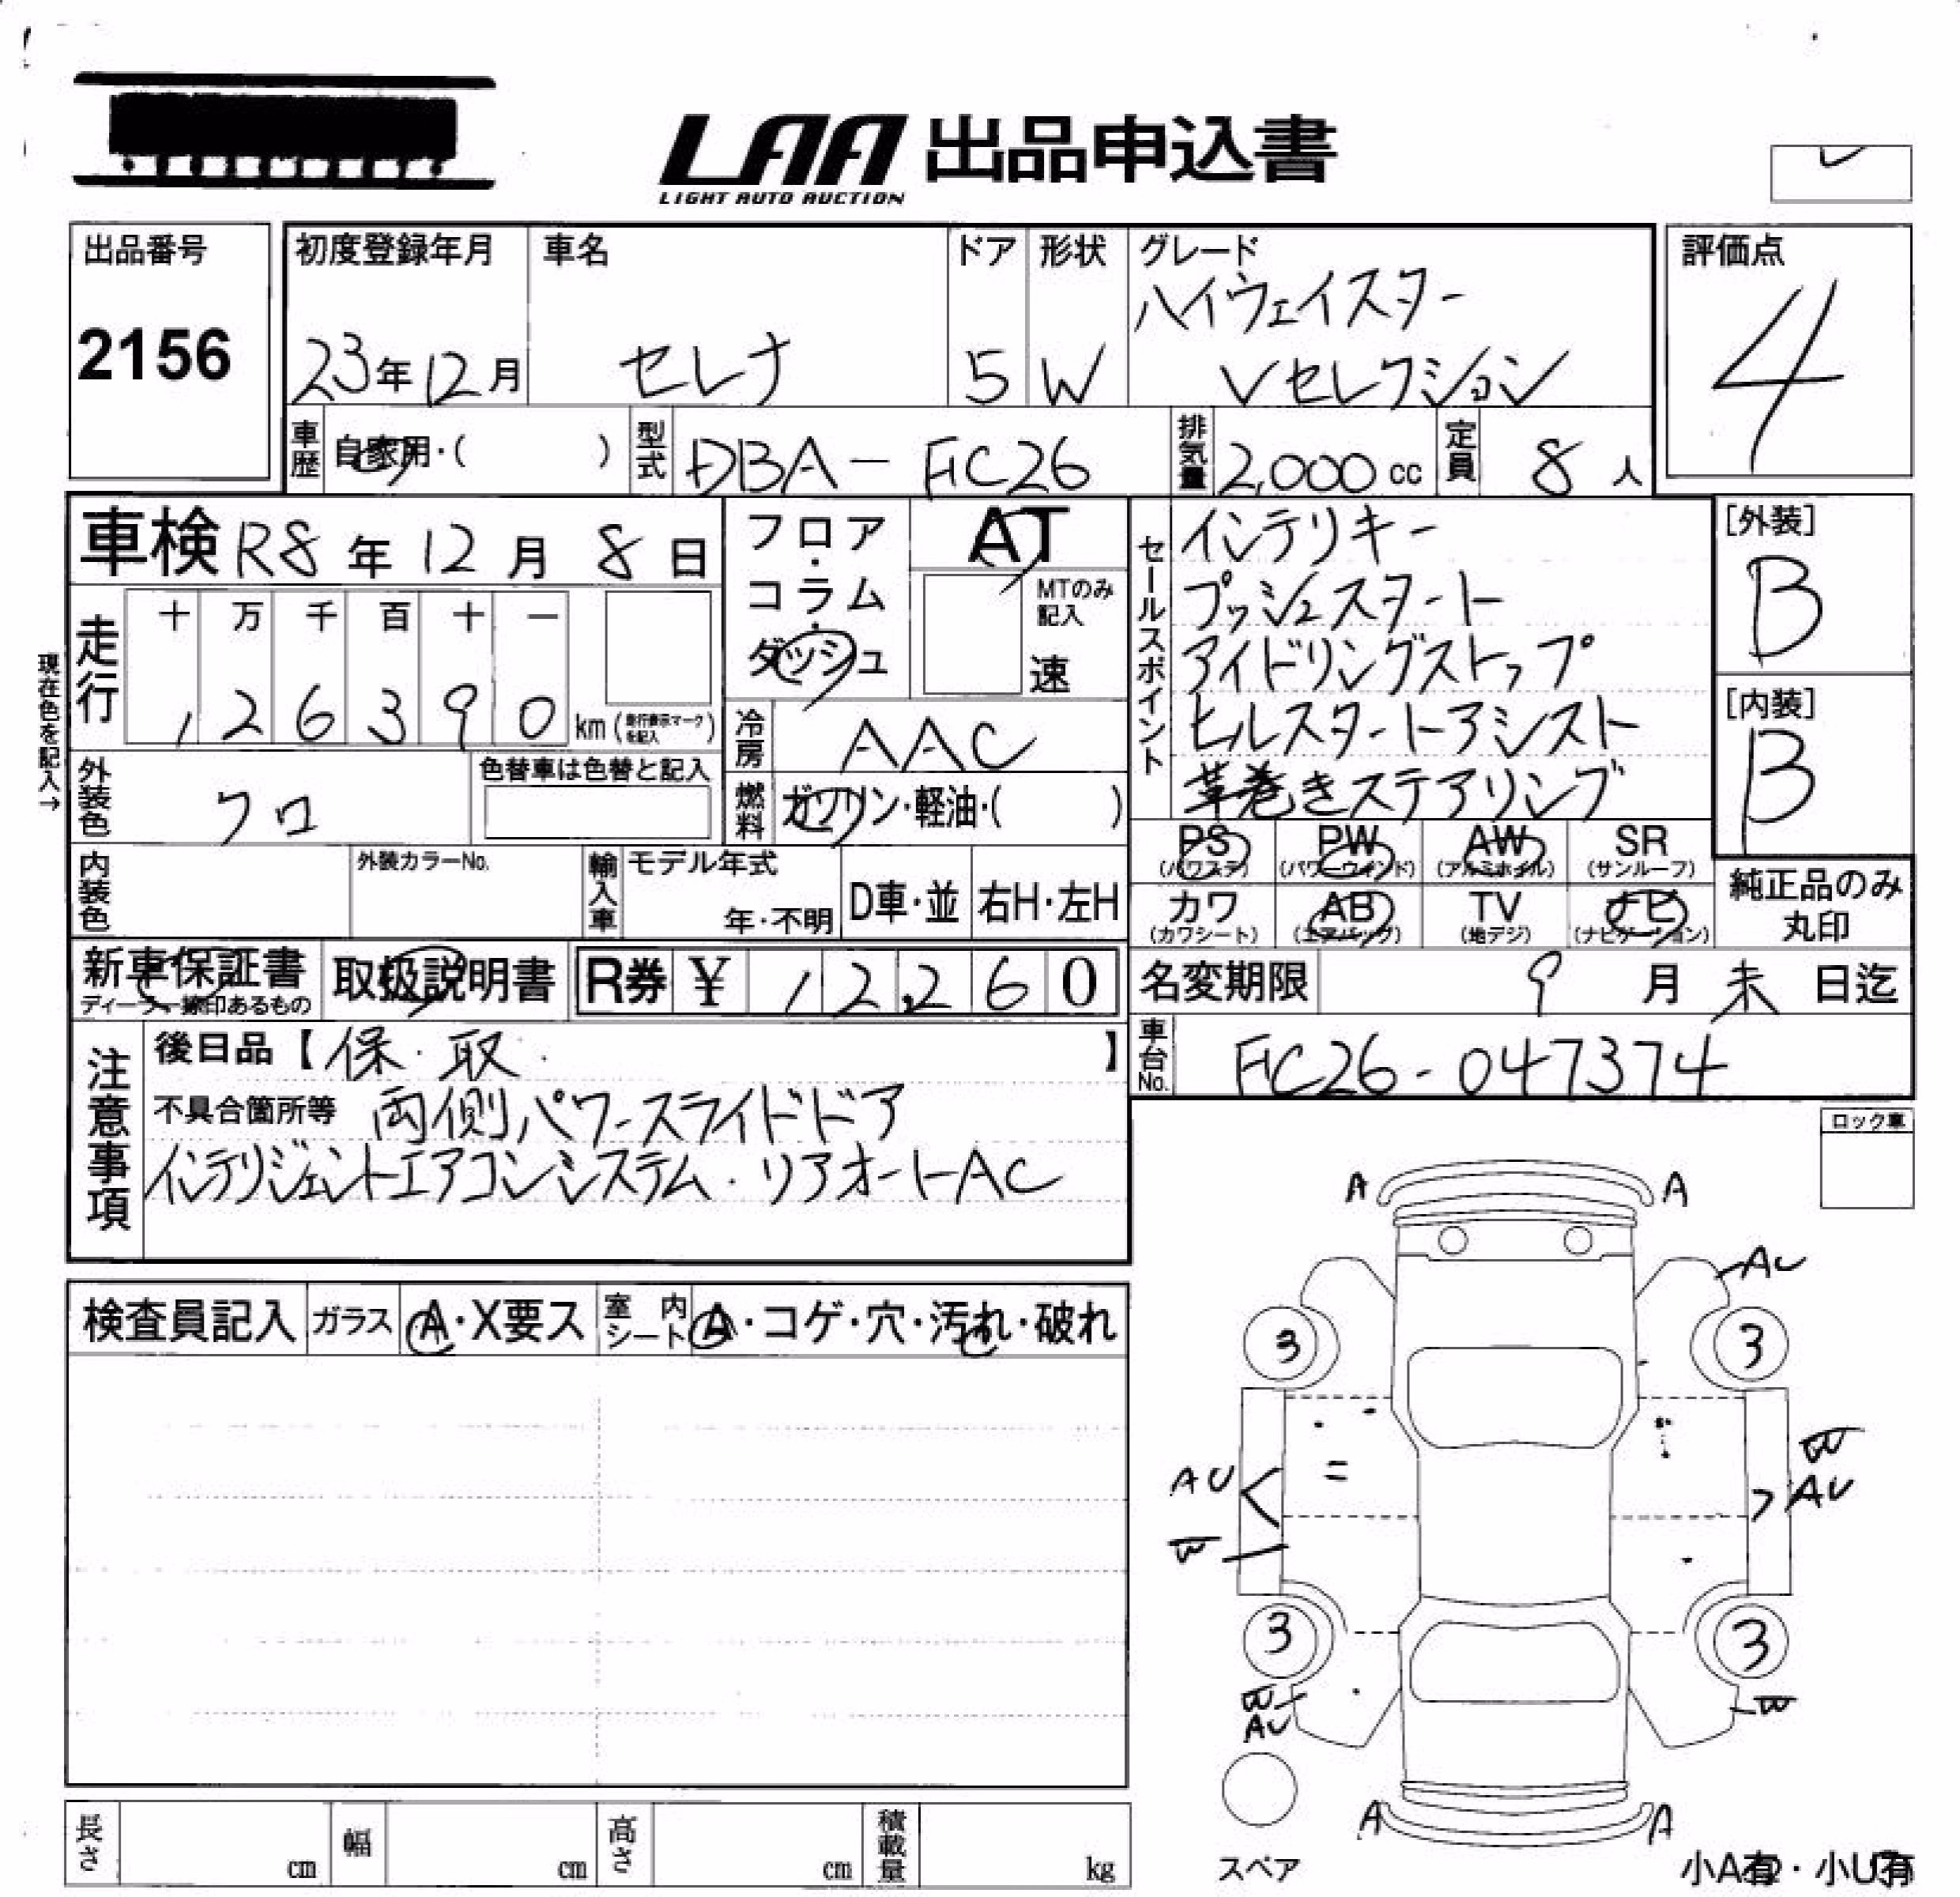 LAA 出品申込書
LIGHT AUTO AUCTION
出品番号
2156
初度登録年月
23年12月
車名
セレナ
ドア
5
形状
W
グレード
ハイウェイスター
Vセレクション
評価点
4
車歴 自家用・( )
型式 DBA-FC26
排気量 2,000cc
定員 8人
車検 R8年12月8日
フロア・コラム・ダッシュ
AT
MTのみ記入
速
セールスポイント
インテリキー
プッシュスタート
アイドリングストップ
ヒルスタートアシスト
革巻きステアリング
[外装]
B
[内装]
B
現在色を記入→
走行
十 万 千 百 十 一
1 2 6 3 9 0 km (走行表示マークを記入)
冷房 AAC
外装色 クロ
色替車は色替と記入
燃料 ガソリン・軽油・( )
PS (パワステ)
PW (パワーウインド)
AW (アルミホイル)
SR (サンルーフ)
カワ (カワシート)
AB (エアバック)
TV (地デジ)
ナビ (ナビゲーション)
純正品のみ丸印
内装色
外装カラーNo.
輸入車
モデル年式
年・不明
D車・並
右H・左H
新車保証書
ディーラー線印あるもの
取扱説明書
R券 ¥ 12,260
名変期限 9月末日迄
車台No. FC26-047374
注意事項
後日品【保・取・】
不具合箇所等 両側パワースライドドア
インテリジェントエアコンシステム・リアオートAC
ロック車
検査員記入
ガラス A・X要ス
室内シート A・コゲ・穴・汚れ・破れ
A A
AU
3 3
W
AU AU
W
3 3
W W
AU
A A
スペア
長さ cm
幅 cm
高さ cm
積載量 kg
小A有・小U有